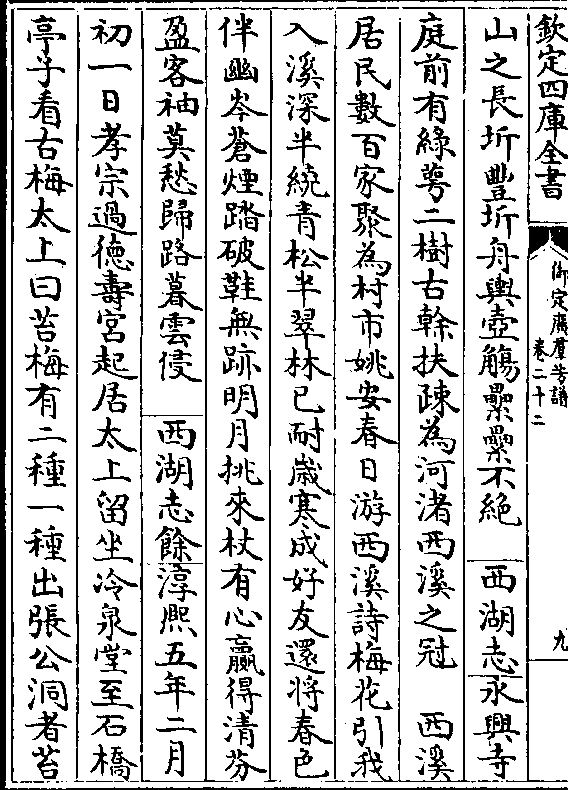 欽定四庫全書
御定廣羣芳譜
卷二十二
九
山之長圻豐圻舟輿壺觴纍纍不絶　西湖志永興寺
庭前有綠萼二樹古榦扶疎為河渚西溪之冠　西溪
居民數百家聚為村市姚安春日游西溪詩梅花引我
入溪深半繞青松半翠林已耐歲寒成好友還將春色
伴幽岑蒼煙踏破鞋無跡明月挑來杖有心贏得清芬
盈客袖莫愁歸路暮雲侵　西湖志餘淳熙五年二月
初一日孝宗過德壽宫起居太上留坐冷泉堂至石橋
亭子看古梅太上曰苔梅有二種一種出張公洞者苔